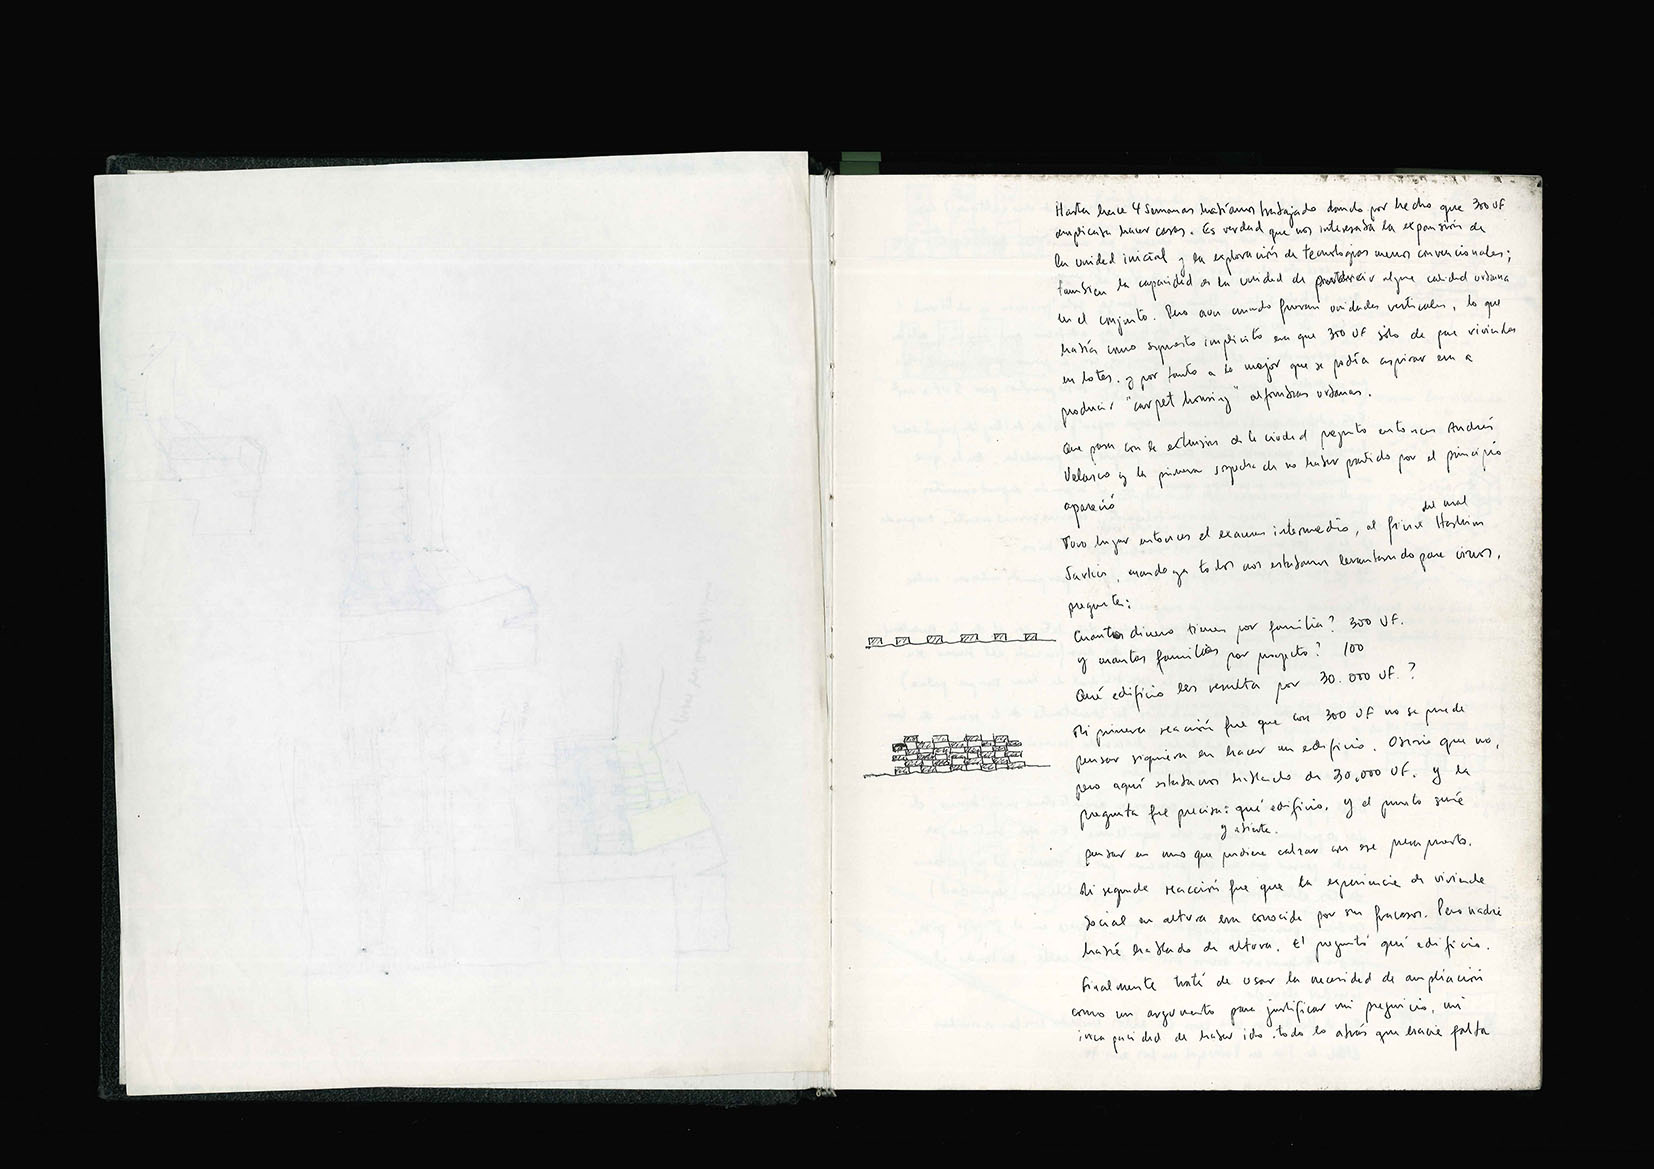 Hasta hace 4 semanas habíamos trabajado dando por hecho que 300 UF
implicaba hacer casas. Es verdad que nos interesaba la expansión de
la unidad inicial y la exploración de tecnologías menos convencionales;
tambien la capacidad de la unidad de producir alguna calidad urbana
en el conjunto. Pero aun cuando fueran unidades verticales, lo que
había como supuesto implícito era que 300 UF sólo da para viviendas
en lotes. y por tanto a lo mejor que se podía aspirar era a
producir "carpet housing" alfombras urbanas.
Que pasa con la exclusion de la ciudad pregunto entonces Andrés
Velasco y la primera sospecha de no haber partido por el principio
apareció
del aval
Tuvo lugar entonces el examen intermedio, al final Hashim
Sarkis, cuando ya todos nos estábamos levantando para irnos,
pregunta:
Cuanto dinero tienen por familia? 300 UF.
y cuantas familias por proyecto? 100
Qué edificio les resulta por 30.000 UF.?
Mi primera reacción fue que con 300 UF no se puede
pensar siquiera en hacer un edificio. Obvio que no,
pero aquí estabamos hablando de 30,000 UF. y la
pregunta fue precisa: qué edificio. y el punto sería
y asiente.
pensar en uno que pudiera calzar con ese presupuesto.
Mi segunda reacción fue que la experiencia de vivienda
social en altura era conocida por sus fracasos. Pero nadie
había hablado de altura. El preguntó qué edificio.
Finalmente traté de usar la necesidad de ampliación
como un argumento para justificar mi prejuicio, mi
incapacidad de haber ido todo lo atrás que hacía falta